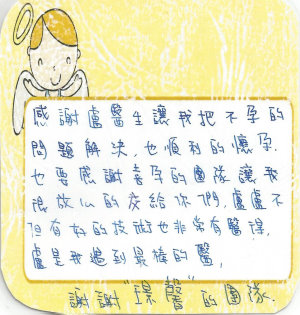 感謝盧醫生讓我把不孕的
問題解決,也順利的懷孕.
也要感謝喜孕的團隊讓我
很放心的交給你們,盧盧不
但有好的技術也非常有醫德,
盧是我遇到最棒的醫,
謝謝"璟馨"的團隊.